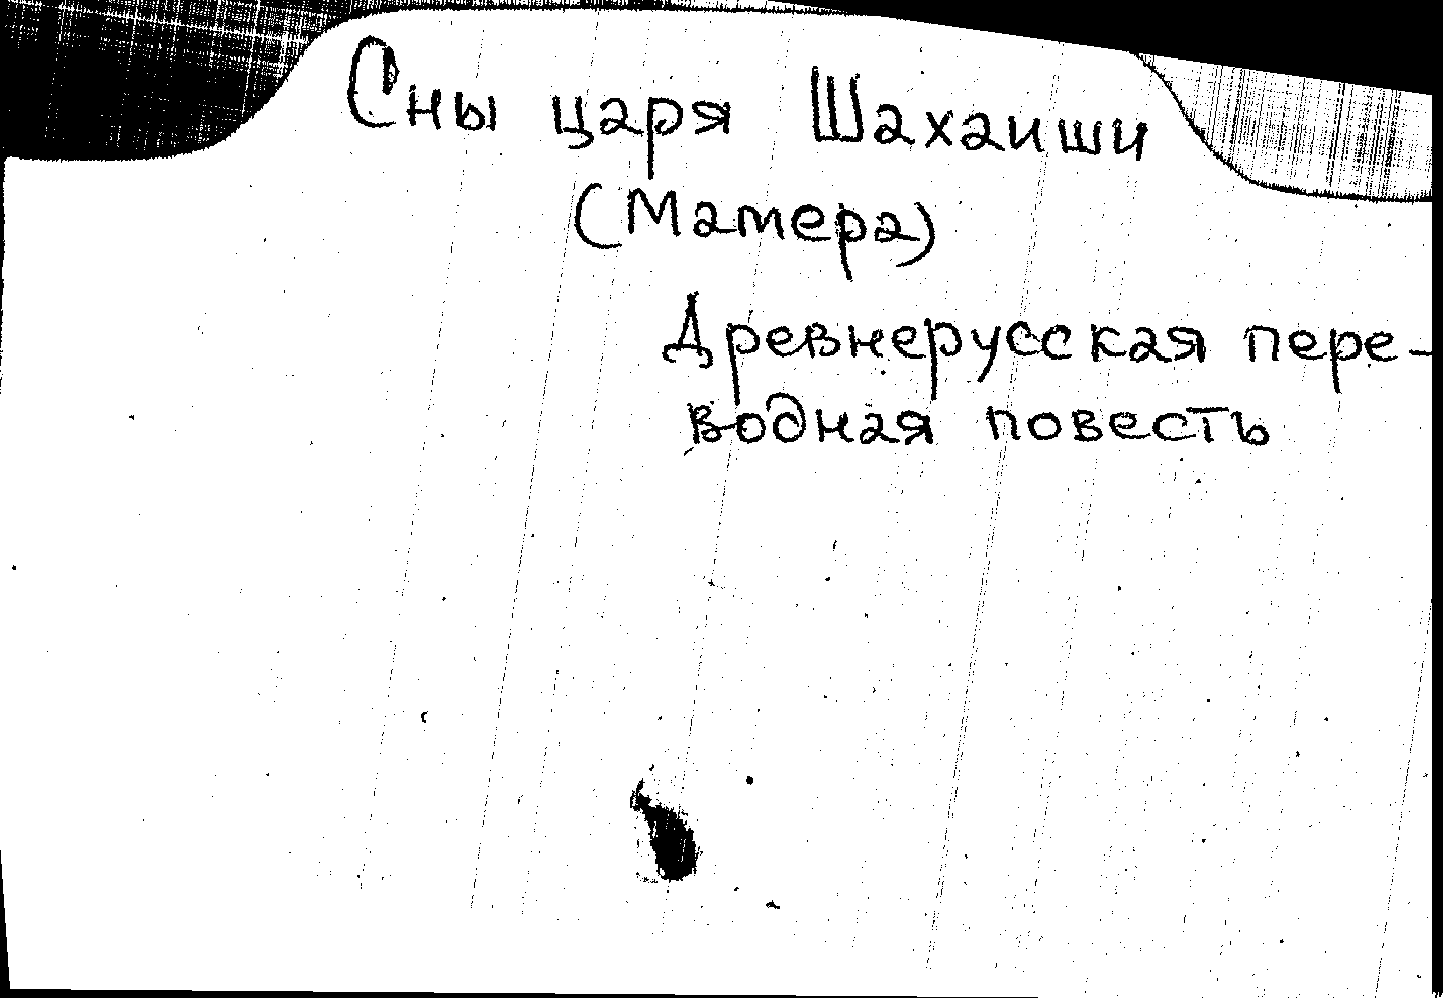 Сны царя Шахаиши
(Мамера)
Древнерусская пере-
водная повесть